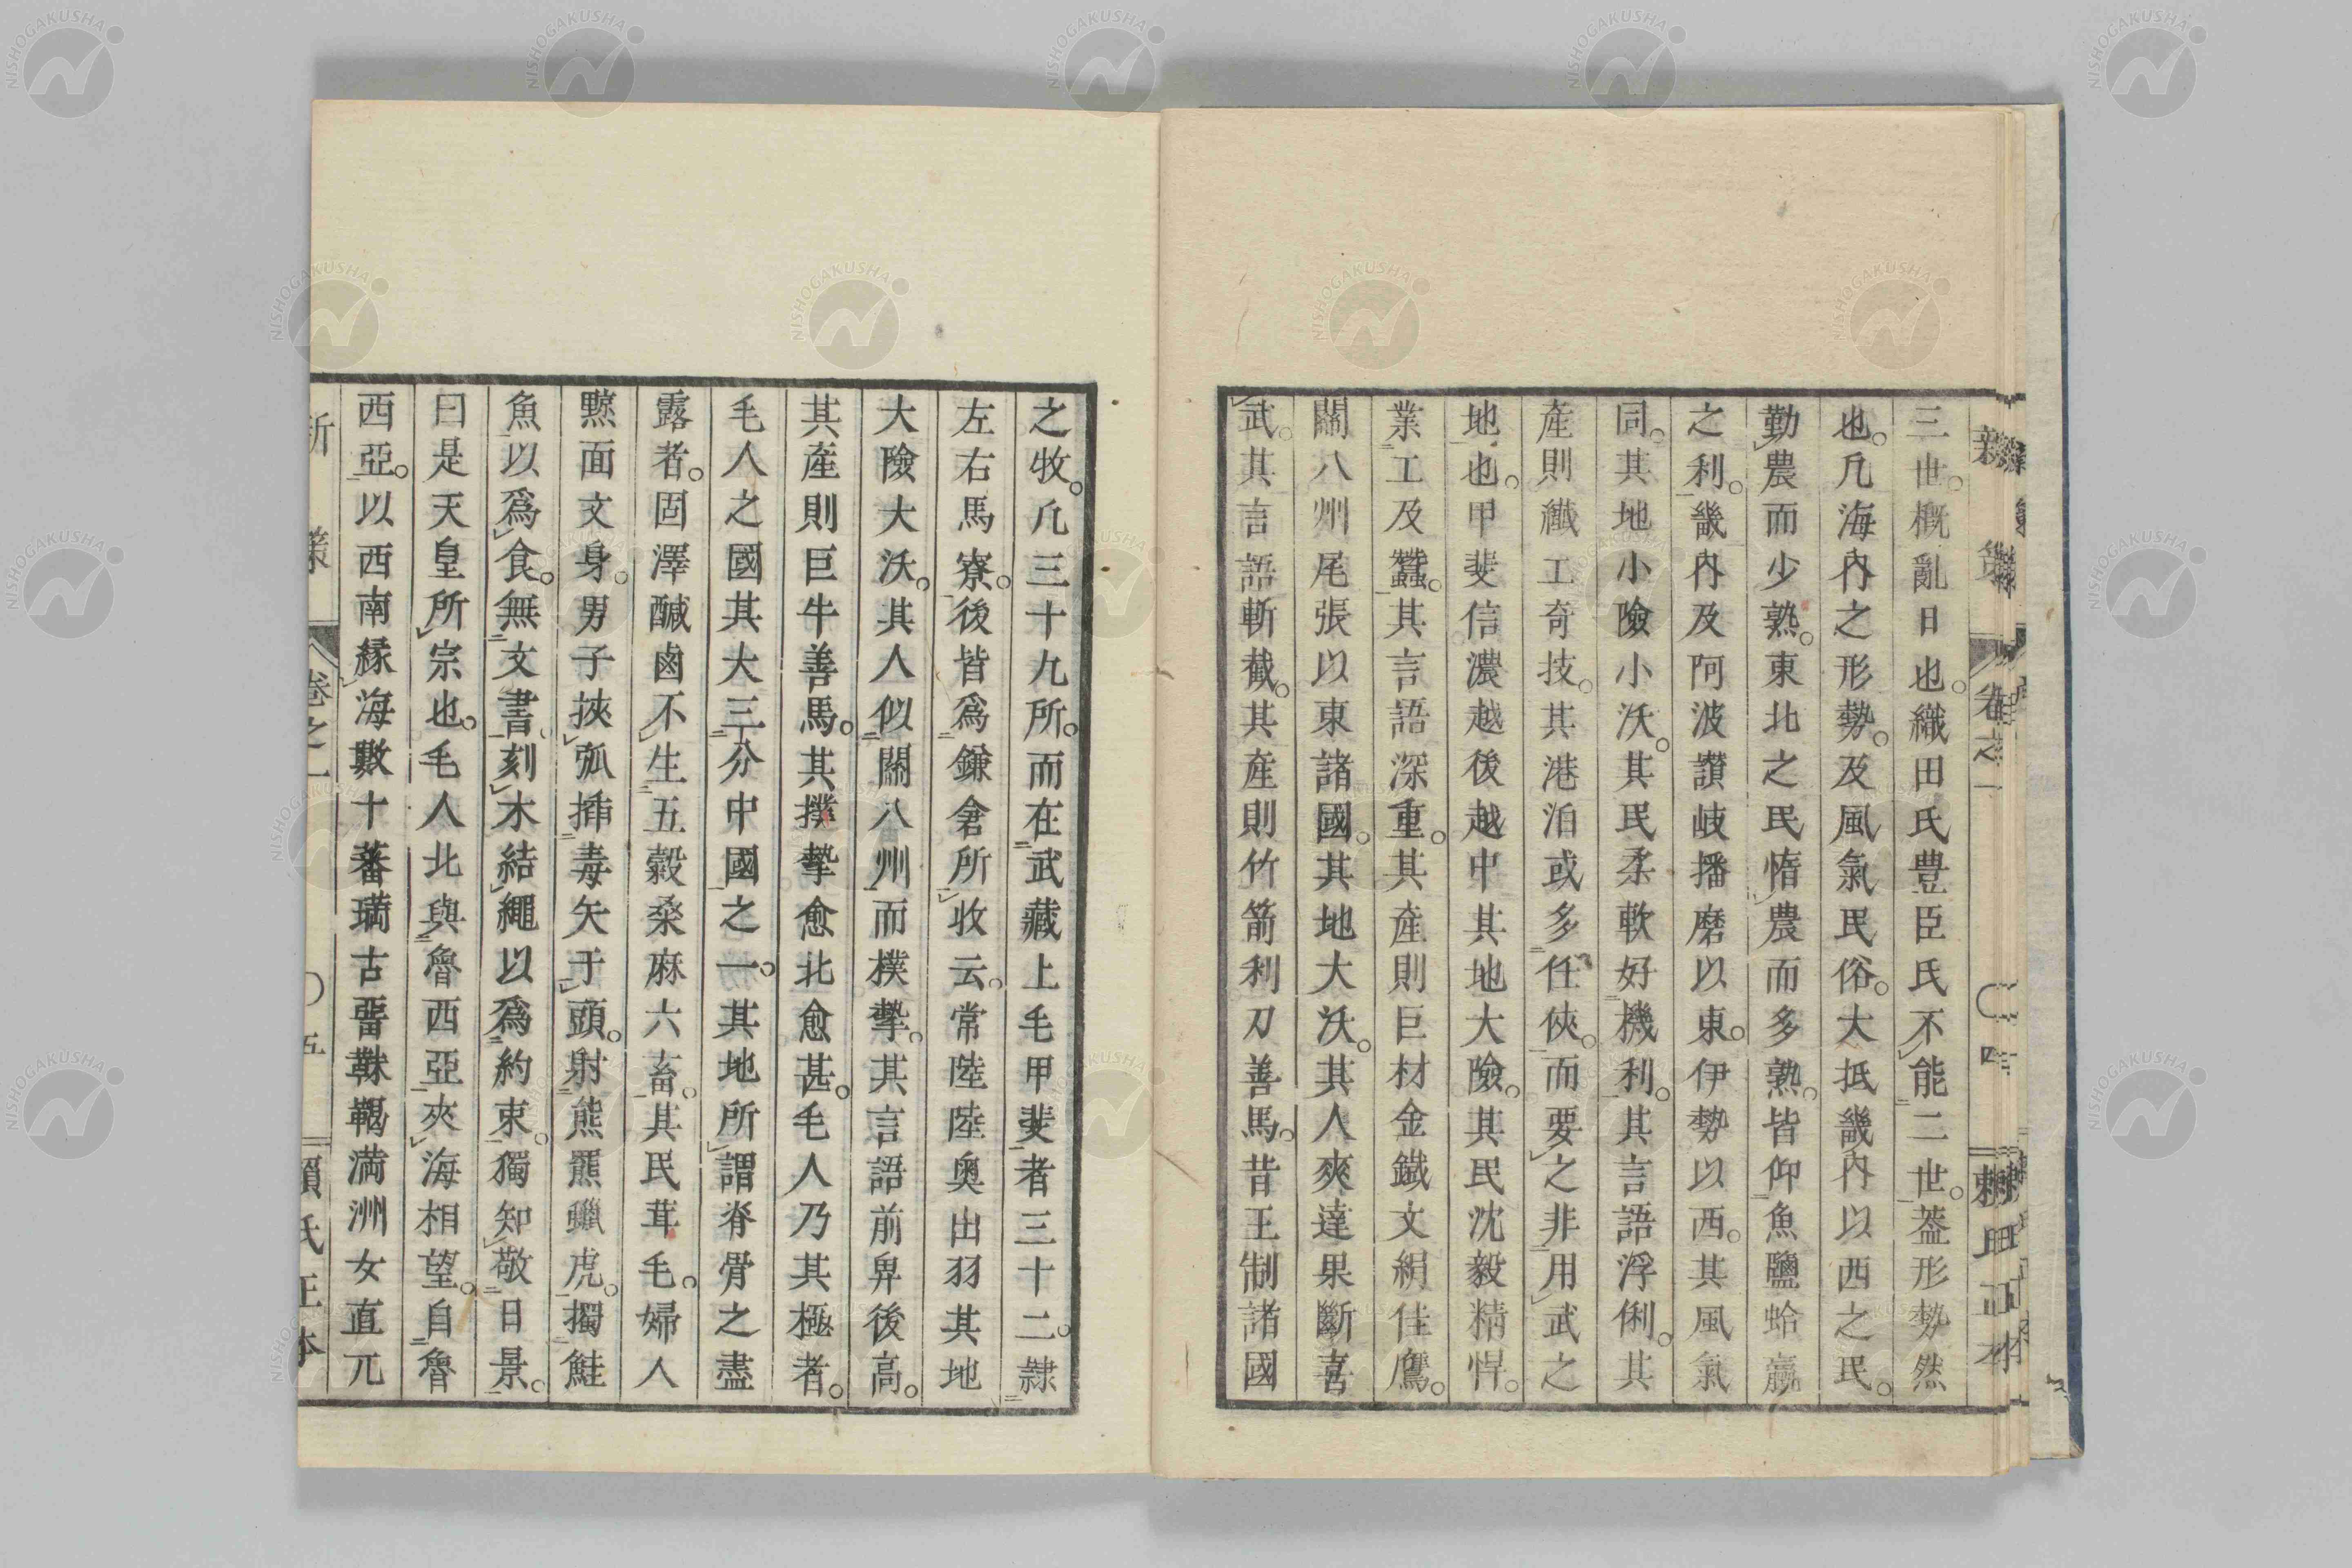 三世。概亂日也。織田氏豊臣氏不能二世。葢形勢然
也。凡海內之形勢。及風氣民俗。大抵畿內以西之民。
勤農而少熟。東北之民惰農而多熟。皆仰魚鹽蛤蠃
之利。畿內及阿波讃岐播磨以東。伊勢以西。其風氣
同。其地小險小沃。其民柔軟好機利。其言語浮俐。其
產則纖工奇技。其港泊或多任俠。而要之非用武之
地也。甲斐信濃越後越中其地大險。其民沈毅精悍。
業工及蠶。其言語深重。其產則巨材金鐵文絹佳鷹。
關八州尾張以東諸國。其地大沃。其人爽達果斷喜
武。其言語斬截。其產則竹箭利刀善馬。昔王制諸國
之牧。凡三十九所。而在武藏上毛甲斐者三十二。隷
左右馬寮。後皆爲鎌倉所收云。常陸陸奥出羽其地
大險大沃。其人似關八州而樸摯。其言語前卑後高。
其產則巨牛善馬。其撲摯愈北愈甚。毛人乃其極者。
毛人之國其大三分中國之一。其地所謂脊骨之盡
露者。固澤醎鹵不生五穀桒麻六畜。其民茸毛。婦人
黥面文身。男子挾弧插毒矢于頭。射熊羆獵虎。擉鮭
魚以爲食。無文書刻木結繩以爲約束。獨知敬日景。
曰是天皇所宗也。毛人北與魯西亞夾海相望。自魯
西亞。以西南緣海數十蕃瑀古靺鞨満洲女直兀
新策
卷之一
〇四
賴氏正本
新策
卷之一
〇五
賴氏正本
NISHOGAKUSHA